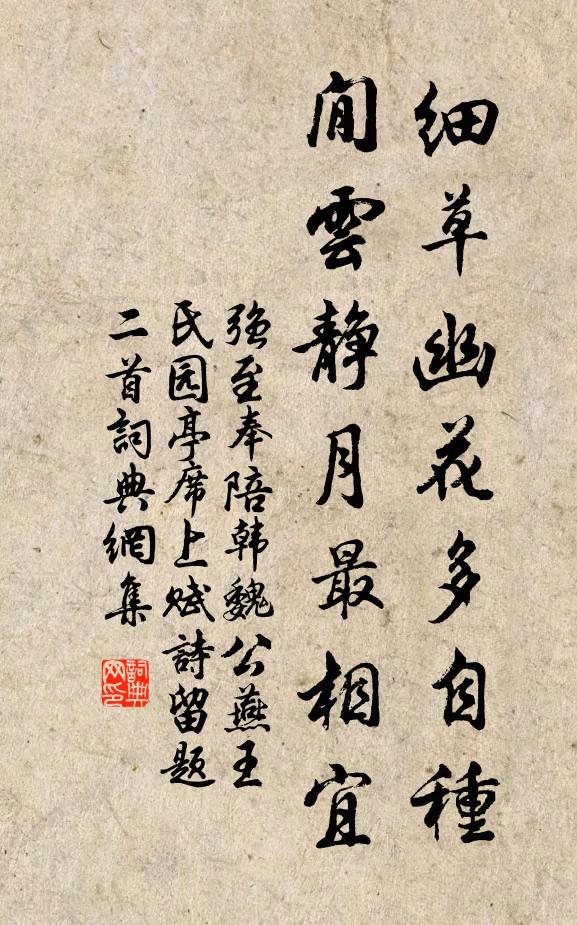 细草幽花多自種
闲雲静月最相宜
强至奉陪韩魏公燕王
民园亭席上赋詩留题
二首詞典網集
詞典网印